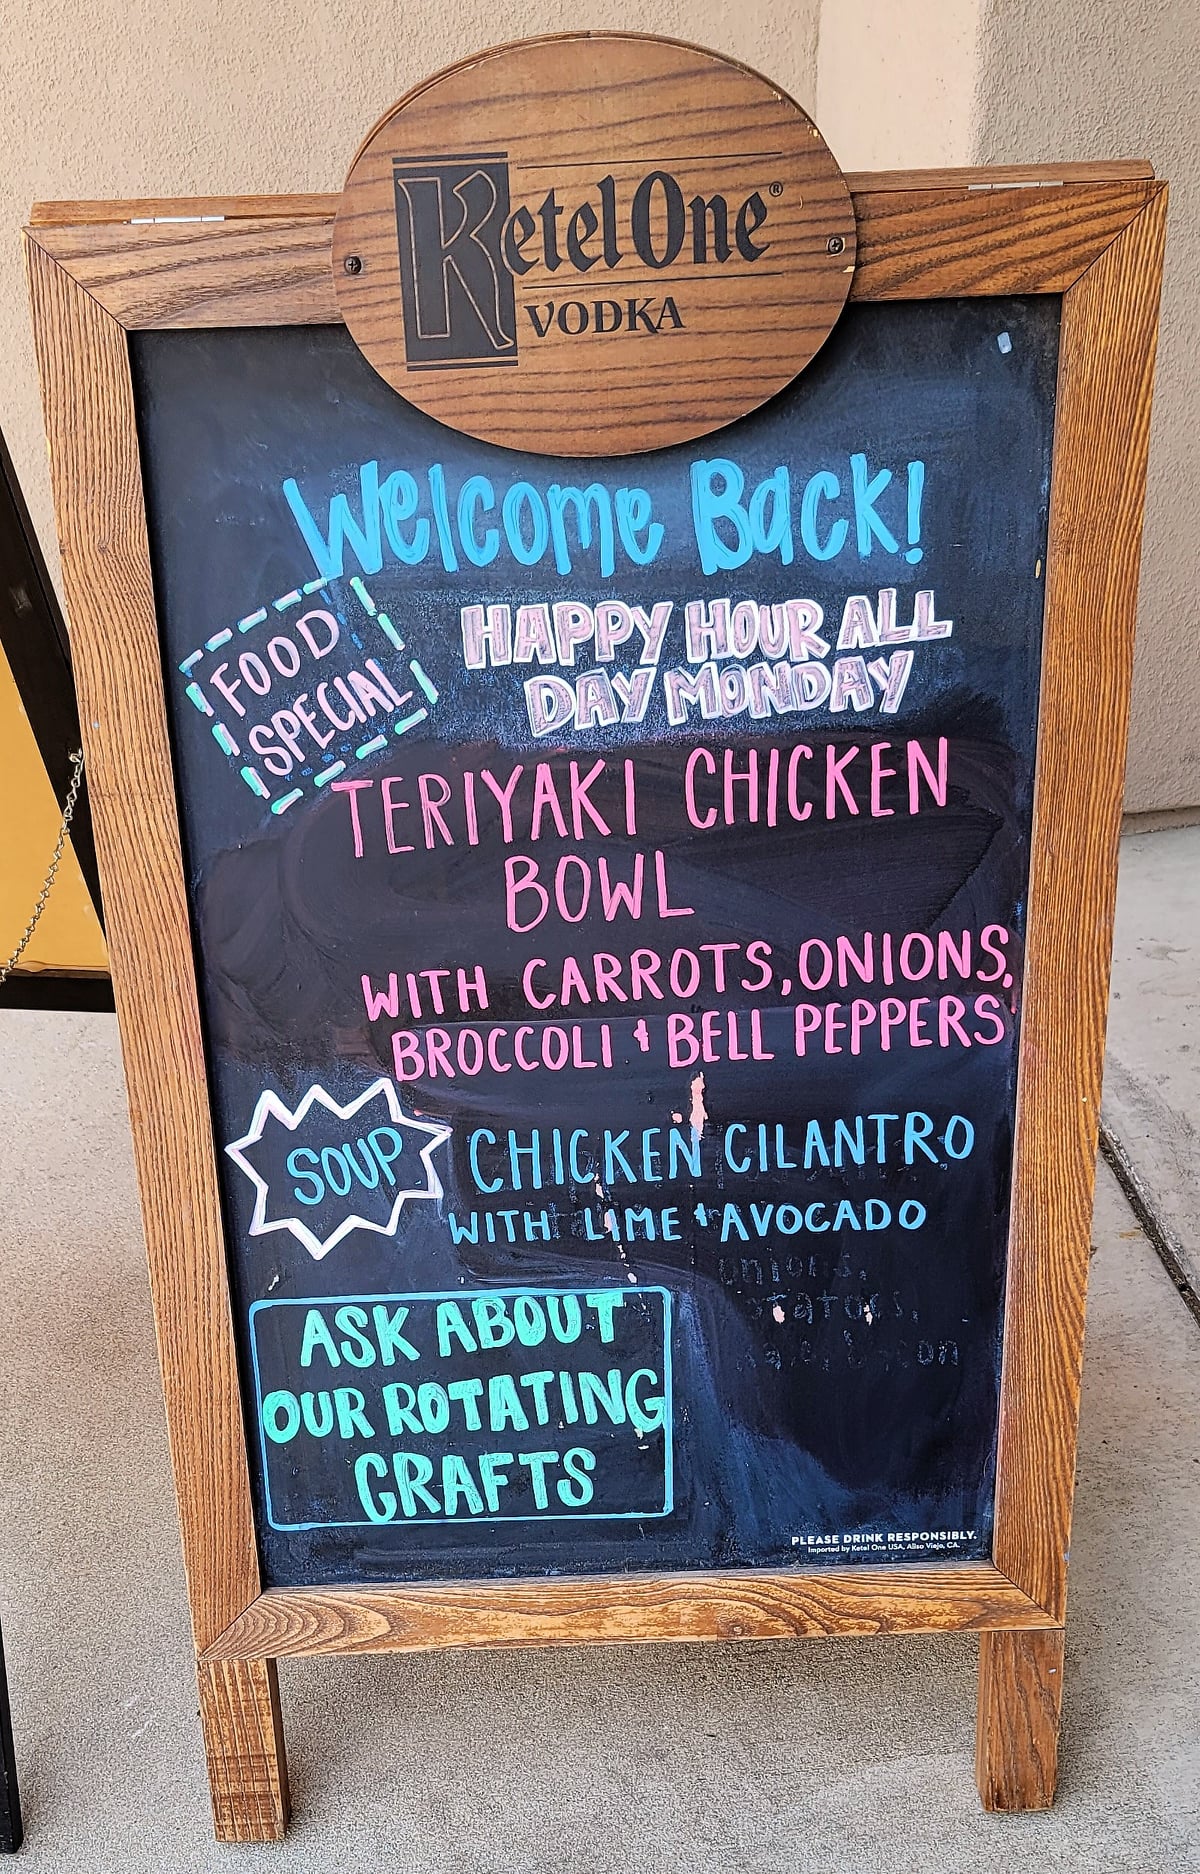 Ketel One®
VODKA
Welcome Back!
FOOD
SPECIAL
HAPPY HOUR ALL
DAY MONDAY
TERIYAKI CHICKEN
BOWL
WITH CARROTS, ONIONS,
BROCCOLI & BELL PEPPERS
SOUP
CHICKEN CILANTRO
WITH LIME & AVOCADO
onions,
ASK ABOUT
OUR ROTATING
CRAFTS
PLEASE DRINK RESPONSIBLY.
Imported by Ketel One USA, Aliso Viejo, CA.